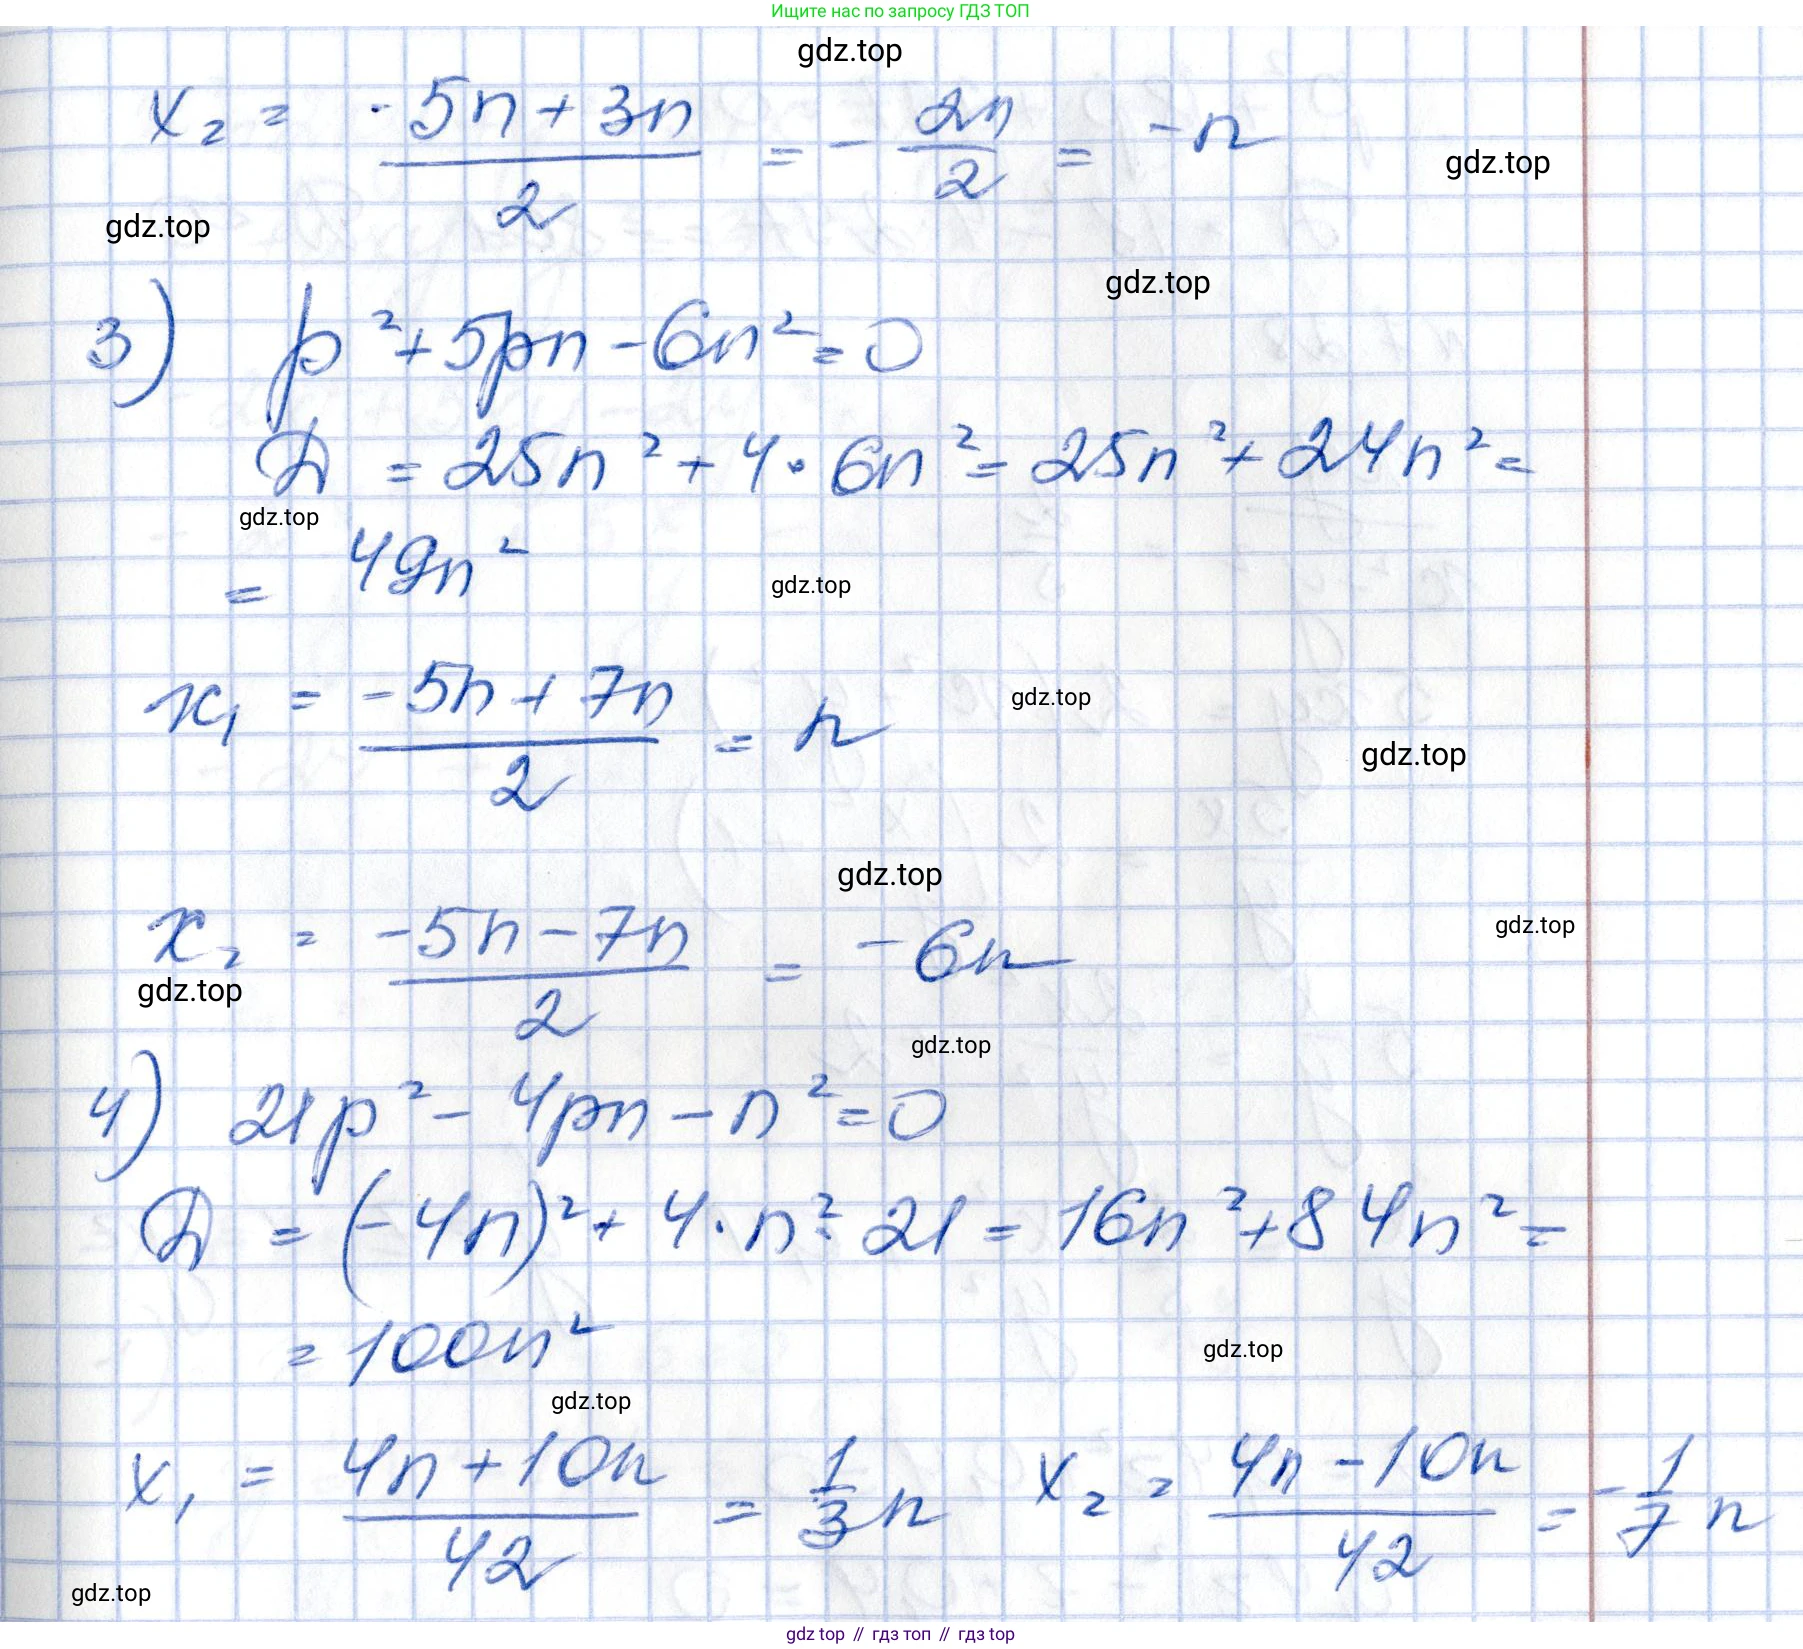 Ищите нас по запросу ГДЗ ТОП
gdz.top
x₂ = (-5n + 3n)/2 = - 2n/2 = -n
gdz.top
gdz.top
gdz.top
3) p² + 5pn - 6n² = 0
D = 25n² + 4 · 6n² = 25n² + 24n² =
gdz.top
= 49n²
gdz.top
x₁ = (-5n + 7n)/2 = n
gdz.top
gdz.top
gdz.top
x₂ = (-5n - 7n)/2 = -6n
gdz.top
gdz.top
gdz.top
4) 21p² - 4pn - n² = 0
D = (-4n)² + 4 · n² · 21 = 16n² + 84n² =
= 100n²
gdz.top
gdz.top
x₁ = (4n + 10n)/42 = 1/3 n x₂ = (4n - 10n)/42 = - 1/7 n
gdz.top
gdz top // гдз топ // gdz top